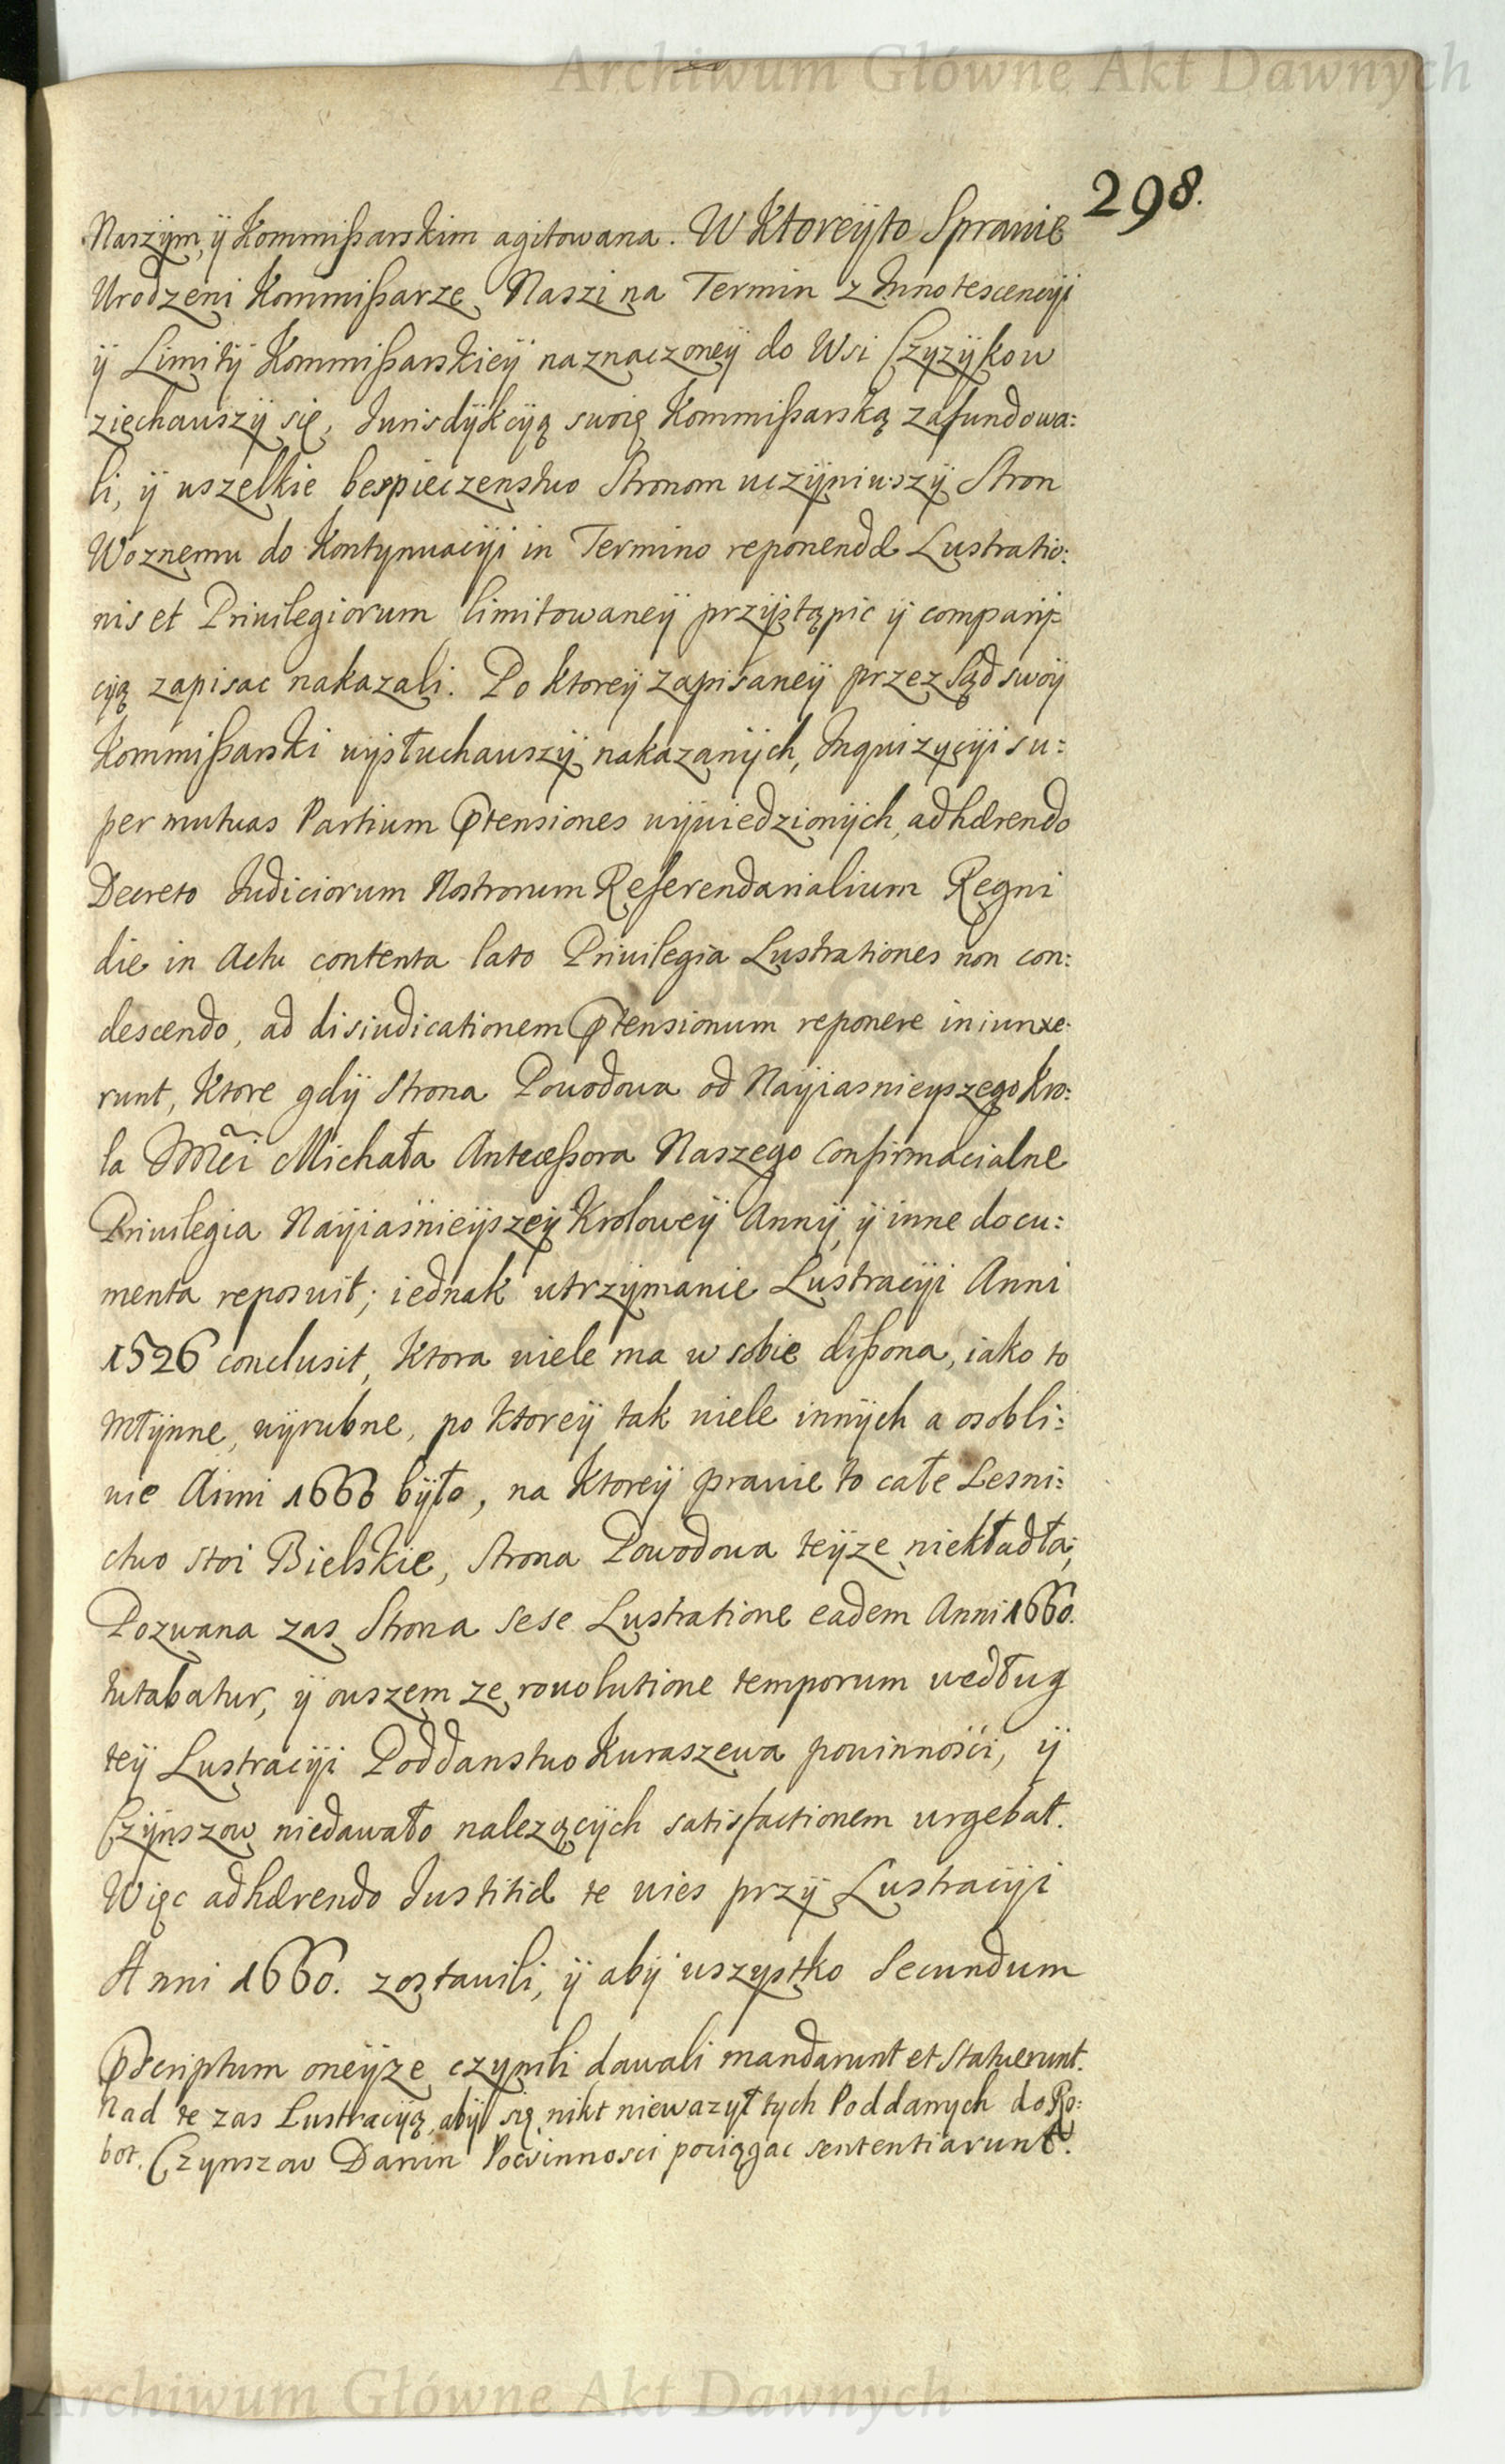 Archiwum Główne Akt Dawnych
298.
Naszÿm, ÿ Kommißarskim agitowana. W Ktoreÿto Sprawie
Urodzeni Kommißarze Naszi na Termin z Innotescencÿi
ÿ Limitÿ Kommißarskieÿ naznaczoneÿ do Wsi Czyzÿkow
ziechawszÿ się, Iurisdÿkcÿą swoię Kommißarską zafundowa:
li, ÿ wszelkie bespieczenstwo Stronom uczÿniwszÿ Stron
Woznemu do Kontynuacÿi in Termino reponendæ Lustratio:
nis et Privilegiorum limitowaneÿ przÿstąpic ÿ comparÿ:
cÿą zapisac nakazali. Po ktoreÿ zapisaneÿ przez Sąd swoÿ
Kommißarski wÿsłuchawszÿ nakazanÿch, Inquizycÿi su:
per mutuas Partium Prtensiones wÿwiedzionÿch, adhærendo
Decreto Iudiciorum Nostrorum Referendarialium Regni
die in Actu contenta lato Privilegia Lustrationes non con:
descendo, ad disiudicationem Prtensionum reponere iniunxe:
runt, Ktore gdÿ Strona Powodowa od Naÿiasnieyszego Kro:
la Jmci Michała Antecessora Naszego Confirmacialne
Privilegia Naÿiaśnieÿszeÿ Kroloweÿ Annÿ, ÿ inne docu:
menta reposuit; iednak utrzÿmanie Lustracÿi Anni
1526 conclusit, Ktora wiele ma w sobie dißona, iako to
Młÿnne, wÿrubne, po ktoreÿ tak wiele innÿch a osobli:
wie Anni 1660 bÿło, na Ktoreÿ prawie to całe Lesni:
ctwo stoi Bielskie, Strona Powodowa teÿze niekładła;
Pozwana zas Strona sese Lustratione eadem Anni 1660.
tutabatur, ÿ owszem ze rovolutione temporum według
teÿ Lustracÿi Poddanstwo Kuraszewa powinności, ÿ
Czÿnszow niedawało nalezącÿch satisfactionem urgebat.
Więc adhærendo Iustitiæ te wies przÿ Lustracÿi
Anni 1660. zostawili, ÿ abÿ wszystko Secundum
Prscriptum oneÿze czynili dawali mandarunt et Statuerunt.
Nad te zas Lustracÿą, abÿ się nikt niewazył tych Poddanych do Ro:
bot, Czynszow Danin Powinnosci pociągac sententiarunt.
Archiwum Główne Akt Dawnych